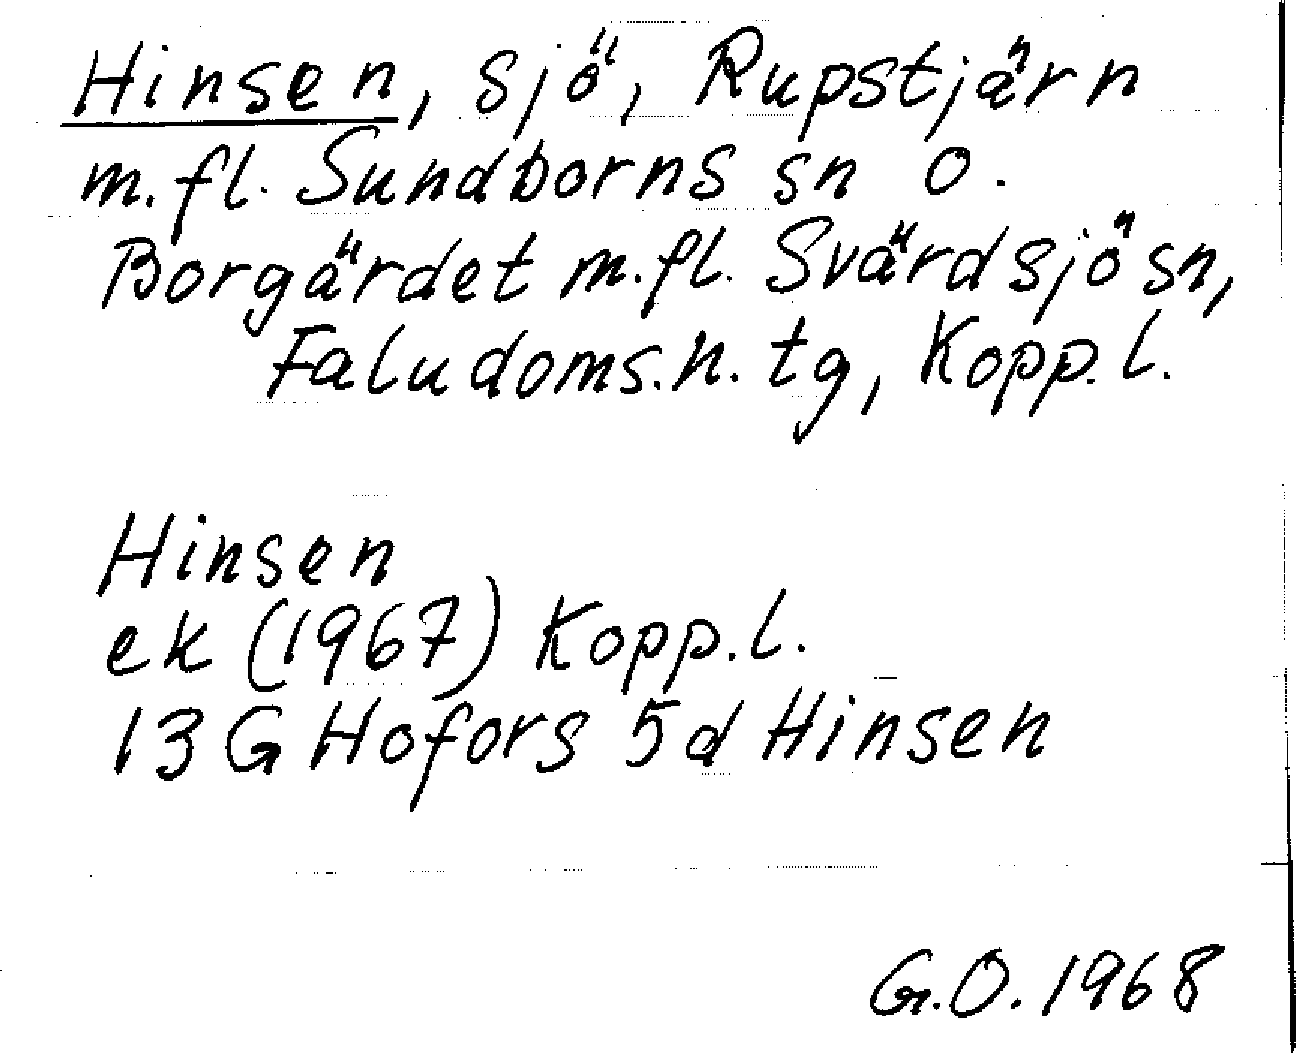 Hinsen, sjö, Rupstjärn
m.fl. Sundborns sn o.
Borgärdet m.fl. Svärdsjö sn,
Faludoms.h. tg, Kopp.l.
Hinsen
ek (1967) Kopp.l.
13 G Hofors 5d Hinsen
G.O. 1968